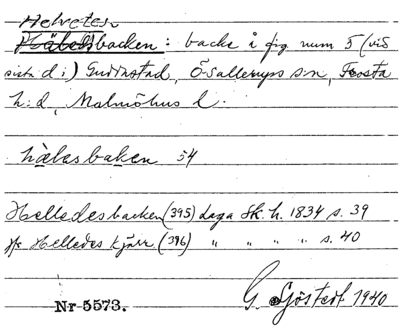 Helvetes
backen: backe i fig num 5 (vid
sista d i) Gudmstad, Ö. Sallerups s:n, Frosta
h:d, Malmöhus l.
hälasbaken 54
Helledesbacken (395) laga sk. h. 1834 s. 39
Helledes kjärr (396) " " " " s. 40
G. Sjöstedt 1940
Nr 5573.